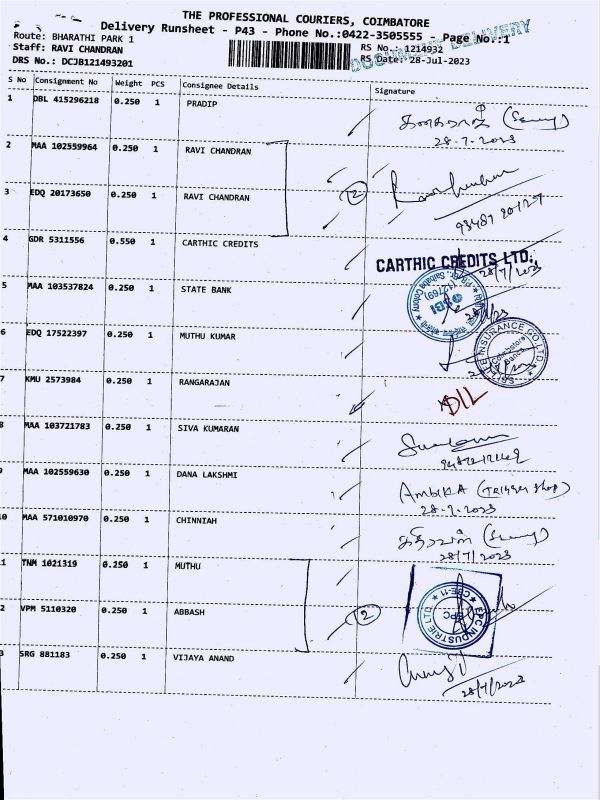 THE PROFESSIONAL COURIERS, COIMBATORE
Delivery Runsheet - P43 - Phone No.:0422-3505555 - Page No.:1
DOCUMENT DELIVERY
Route: BHARATHI PARK 1
RS No.: 1214932
Staff: RAVI CHANDRAN
RS Date: 28-Jul-2023
DRS No.: DCJB121493201
S No Consignment No Weight PCS Consignee Details Signature
1 DBL 415296218 0.250 1 PRADIP
(Sammy)
28.7.2023
2 MAA 102559964 0.250 1 RAVI CHANDRAN
3 EDQ 20173650 0.250 1 RAVI CHANDRAN
2
4 GDR 5311556 0.550 1 CARTHIC CREDITS
CARTHIC CREDITS LTD.,
28/7/2023
5 MAA 103537824 0.250 1 STATE BANK
SBI
(12769)
Saibaba Colony
6 EDQ 17522397 0.250 1 MUTHU KUMAR
INSURANCE CO.LTD.
Coimbatore
7 KMU 2573984 0.250 1 RANGARAJAN
D/L
8 MAA 103721783 0.250 1 SIVA KUMARAN
9 MAA 102559630 0.250 1 DANA LAKSHMI
AMBIKA (Trigger shop)
28.7.2023
10 MAA 571010970 0.250 1 CHINNIAH
கதிர்வேல்
28/7/2023
11 TNM 1021319 0.250 1 MUTHU
12 VPM 5110320 0.250 1 ABBASH
2
EPC INDUSTRIE LTD.
EPC
CBE-11
13 SRG 881183 0.250 1 VIJAYA ANAND
28/7/2023